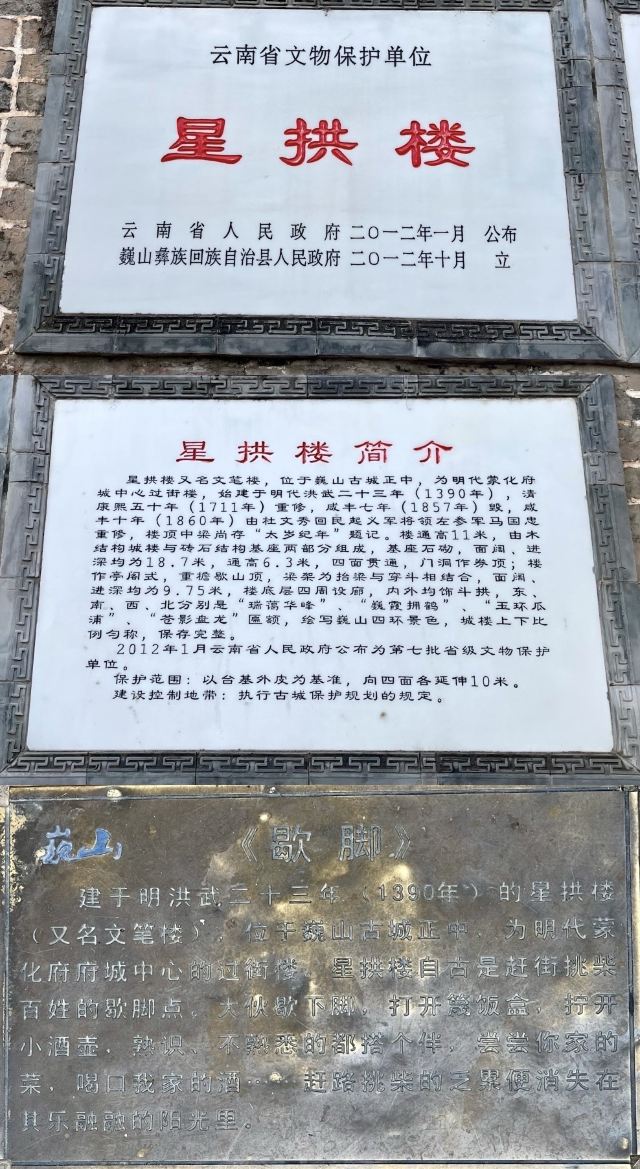 云南省文物保护单位
星拱楼
云南省人民政府 二〇一二年一月 公布
巍山彝族回族自治县人民政府 二〇一二年十月 立
星拱楼简介
星拱楼又名文笔楼，位于巍山古城正中，为明代蒙化府
城中心过街楼，始建于明代洪武二十三年（1390年），清
康熙五十年（1711年）重修，咸丰七年（1857年）毁，咸
丰十年（1860年）由杜文秀回民起义军将领左参军马国忠
重修，楼顶中梁尚存“太岁纪年”题记。楼通高11米，由木
结构城楼与砖石结构基座两部分组成，基座石砌，面阔、进
深均为18.7米，通高6.3米，四面贯通，门洞作券顶；楼
作亭阁式，重檐歇山顶，梁架为抬梁与穿斗相结合，面阔、
进深均为9.75米，楼底层四周设廊，内外均饰斗拱，东、
南、西、北分别是“瑞霭华峰”、“巍霞拥鹤”、“玉环瓜
浦”、“苍影盘龙”匾额，绘写巍山四环景色，城楼上下比
例匀称，保存完整。
2012年1月云南省人民政府公布为第七批省级文物保护
单位。
保护范围：以台基外皮为基准，向四面各延伸10米。
建设控制地带：执行古城保护规划的规定。
巍山
《歇脚》
建于明洪武二十三年（1390年）的星拱楼
（又名文笔楼），位于巍山古城正中，为明代蒙
化府府城中心的过街楼。星拱楼自古是赶街挑柴
百姓的歇脚点。大伙歇下脚，打开篾饭盒，拧开
小酒壶，熟识、不熟悉的都搭个伴，尝尝你家的
菜，喝口我家的酒……赶路挑柴的乏累便消失在
其乐融融的阳光里。